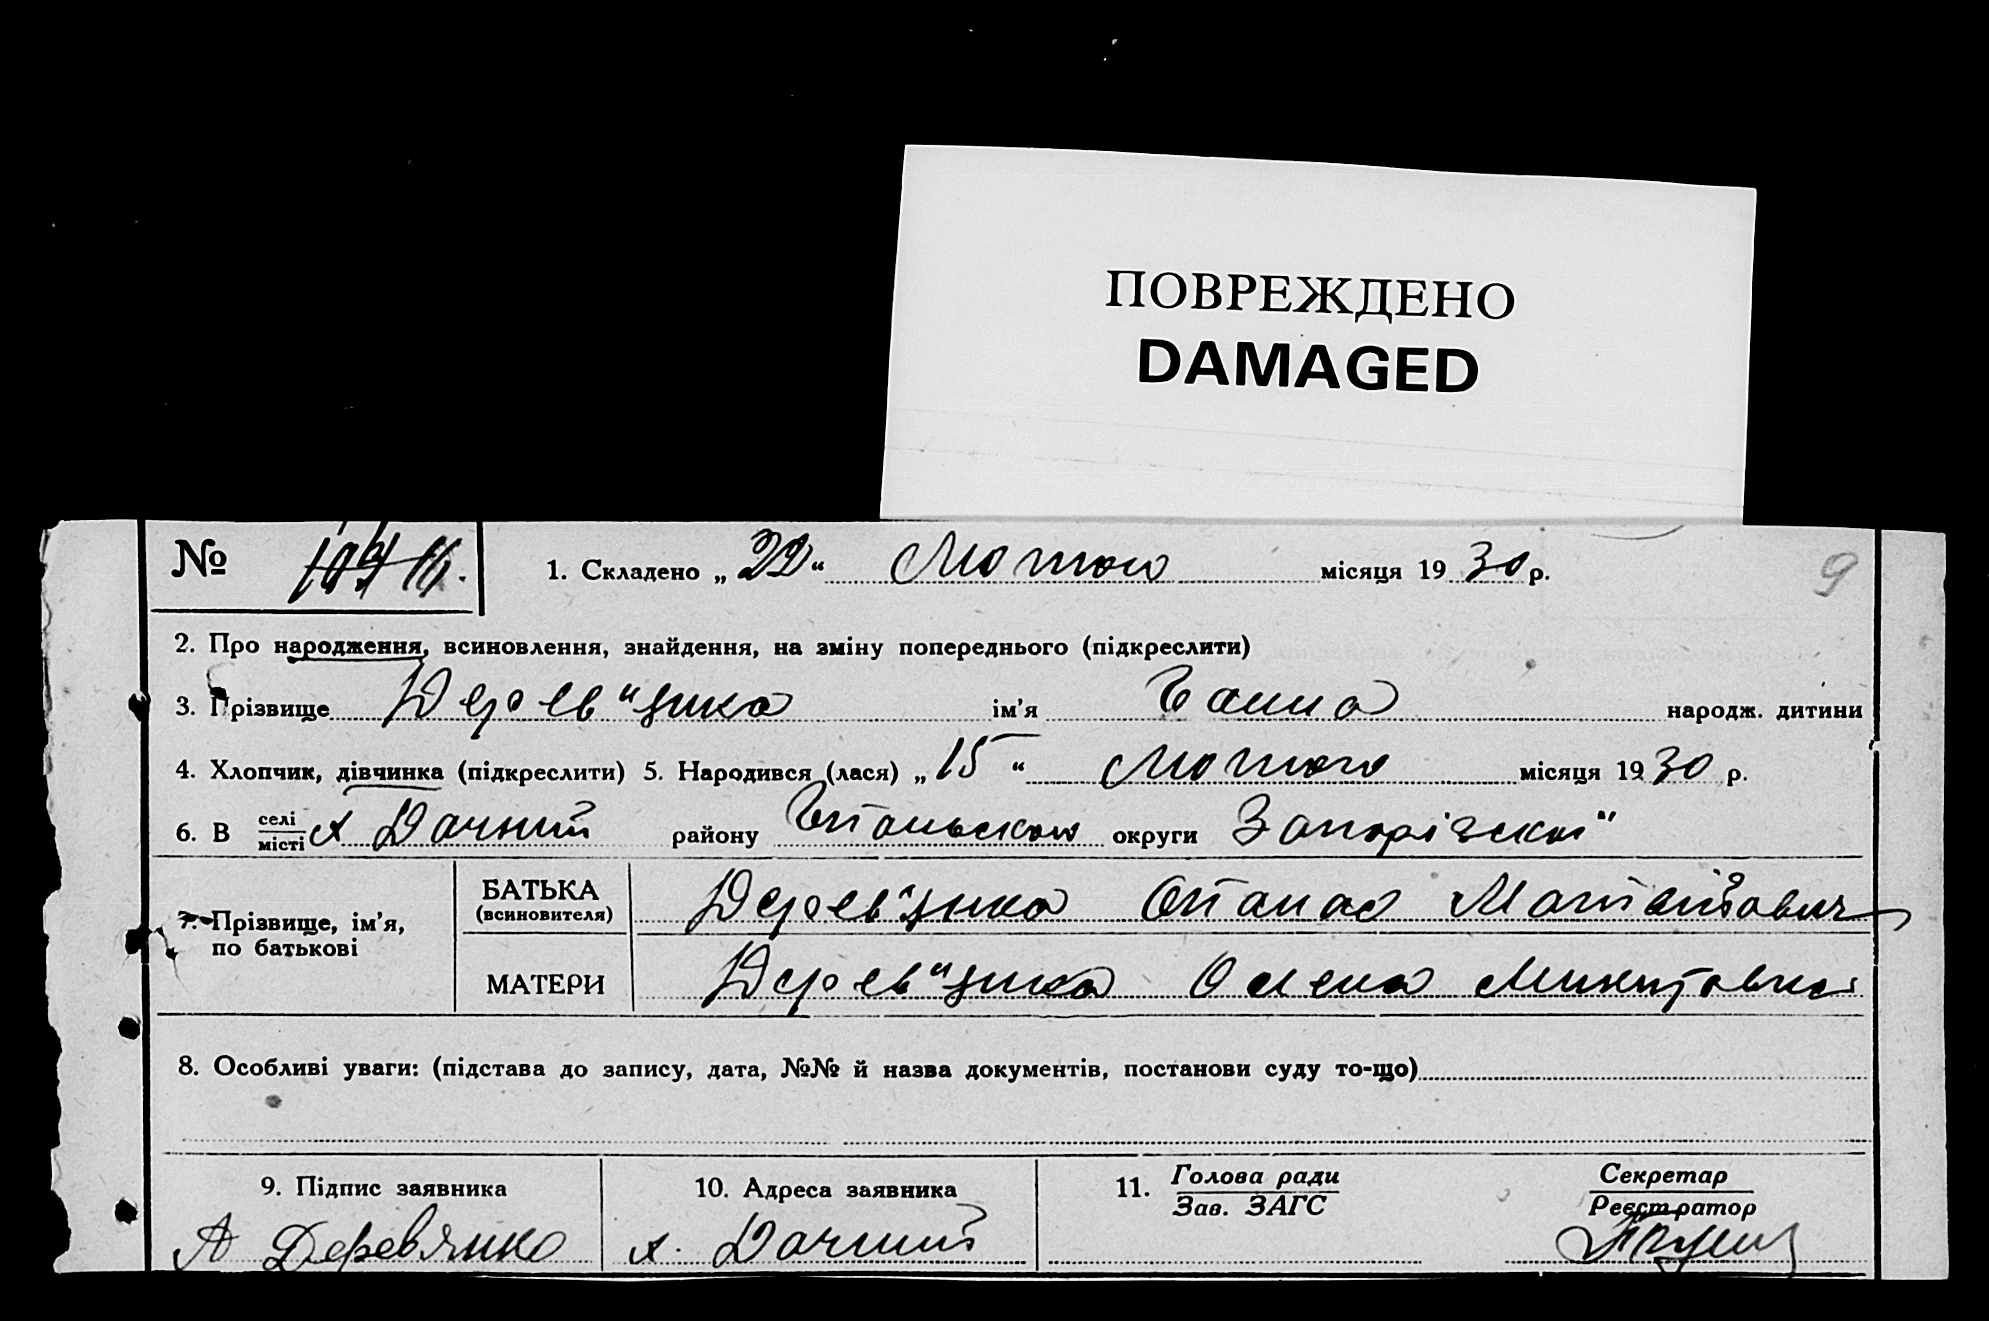 ПОВРЕЖДЕНО
DAMAGED
№ 1. Складено „22“ Лютого місяця 1930 р. 9
2. Про народження, всиновлення, знайдення, на зміну попереднього (підкреслити)
3. Прізвище Дерев"янко ім’я Ганна народж. дитини
4. Хлопчик, дівчинка (підкреслити) 5. Народився (лася) „15“ Лютого місяця 1930 р.
6. В селі/місті х Дачний району округи Запорізької
7. Прізвище, ім’я, по батькові
БАТЬКА (всиновителя) Дерев"янко Опанас
МАТЕРИ Дерев"янко Олена Микитовна
8. Особливі уваги: (підстава до запису, дата, №№ й назва документів, постанови суду то-що)
9. Підпис заявника 10. Адреса заявника 11. Голова ради / Зав. ЗАГС Секретар / Реєстратор
А Деревянко х. Дачний